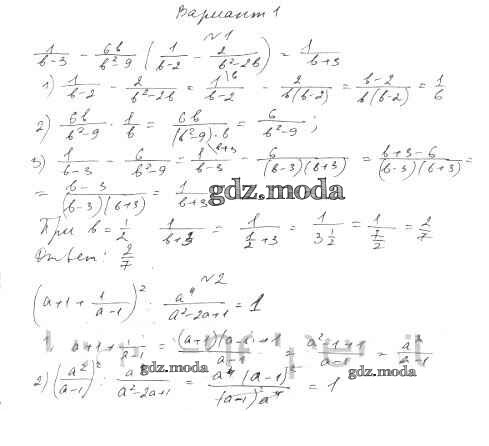 Вариант 1
№1
1/(в-3) - 6в/(в²-9) (1/(в-2) - 2/(в²-2в)) = 1/(в+3)
1) 1/(в-2) - 2/(в²-2в) = 1\в/(в-2) - 2/(в(в-2)) = (в-2)/(в(в-2)) = 1/в
2) 6в/(в²-9) · 1/в = 6в/((в²-9)·в) = 6/(в²-9);
3) 1/(в-3) - 6/(в²-9) = 1\в+3/(в-3) - 6/((в-3)(в+3)) = (в+3-6)/((в-3)(в+3)) =
= (в-3)/((в-3)(в+3)) = 1/(в+3)
gdz.moda
При в = 1/2 1/(в+3) = 1/(1/2+3) = 1/(3 1/2) = 1/(7/2) = 2/7
Ответ: 2/7.
№2
(a+1+1/(a-1))² : a⁴/(a²-2a+1) = 1
1 a+1+1/(a-1) = ((a+1)(a-1)+1)/(a-1) = (a²-1+1)/(a-1) = a²/(a-1)
2) (a²/(a-1))² : a⁴/(a²-2a+1) = a⁴(a-1)²/((a-1)²a⁴) = 1
gdz.moda
gdz.moda